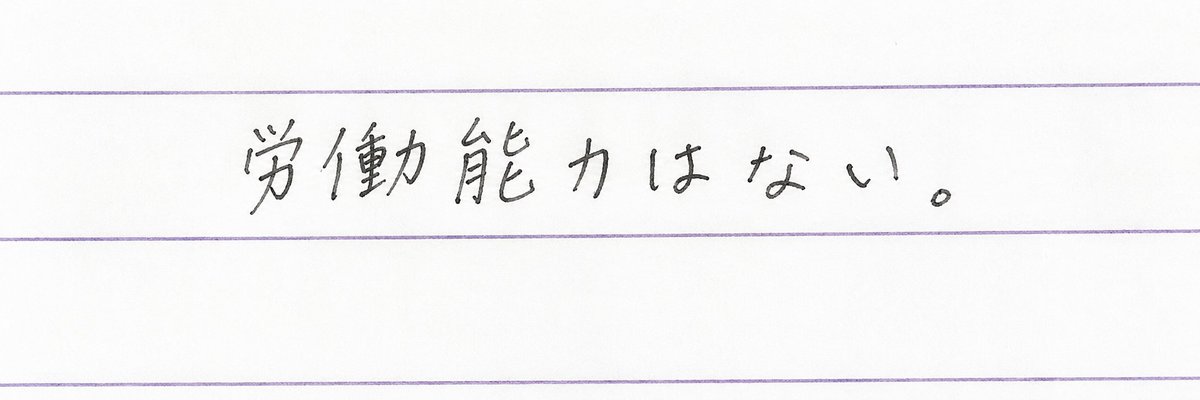 労働能力はない。